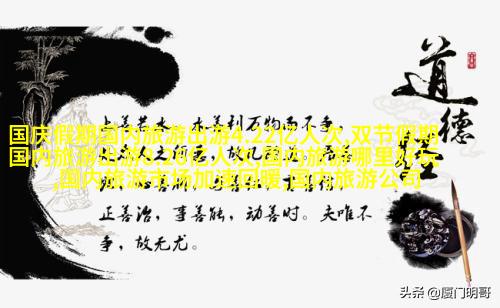 国庆假期国内旅游出游4.22亿人次,双节假期
国内旅游出游8.26亿人次,国内旅游哪里好玩
,国内旅游市场加速回暖,国内旅游公司
道德经
上善若水，水善利万物而不争，
众人之所恶，
正善治，事善能，动善时。夫唯不
争，故无尤。
头条 @厦门明哥